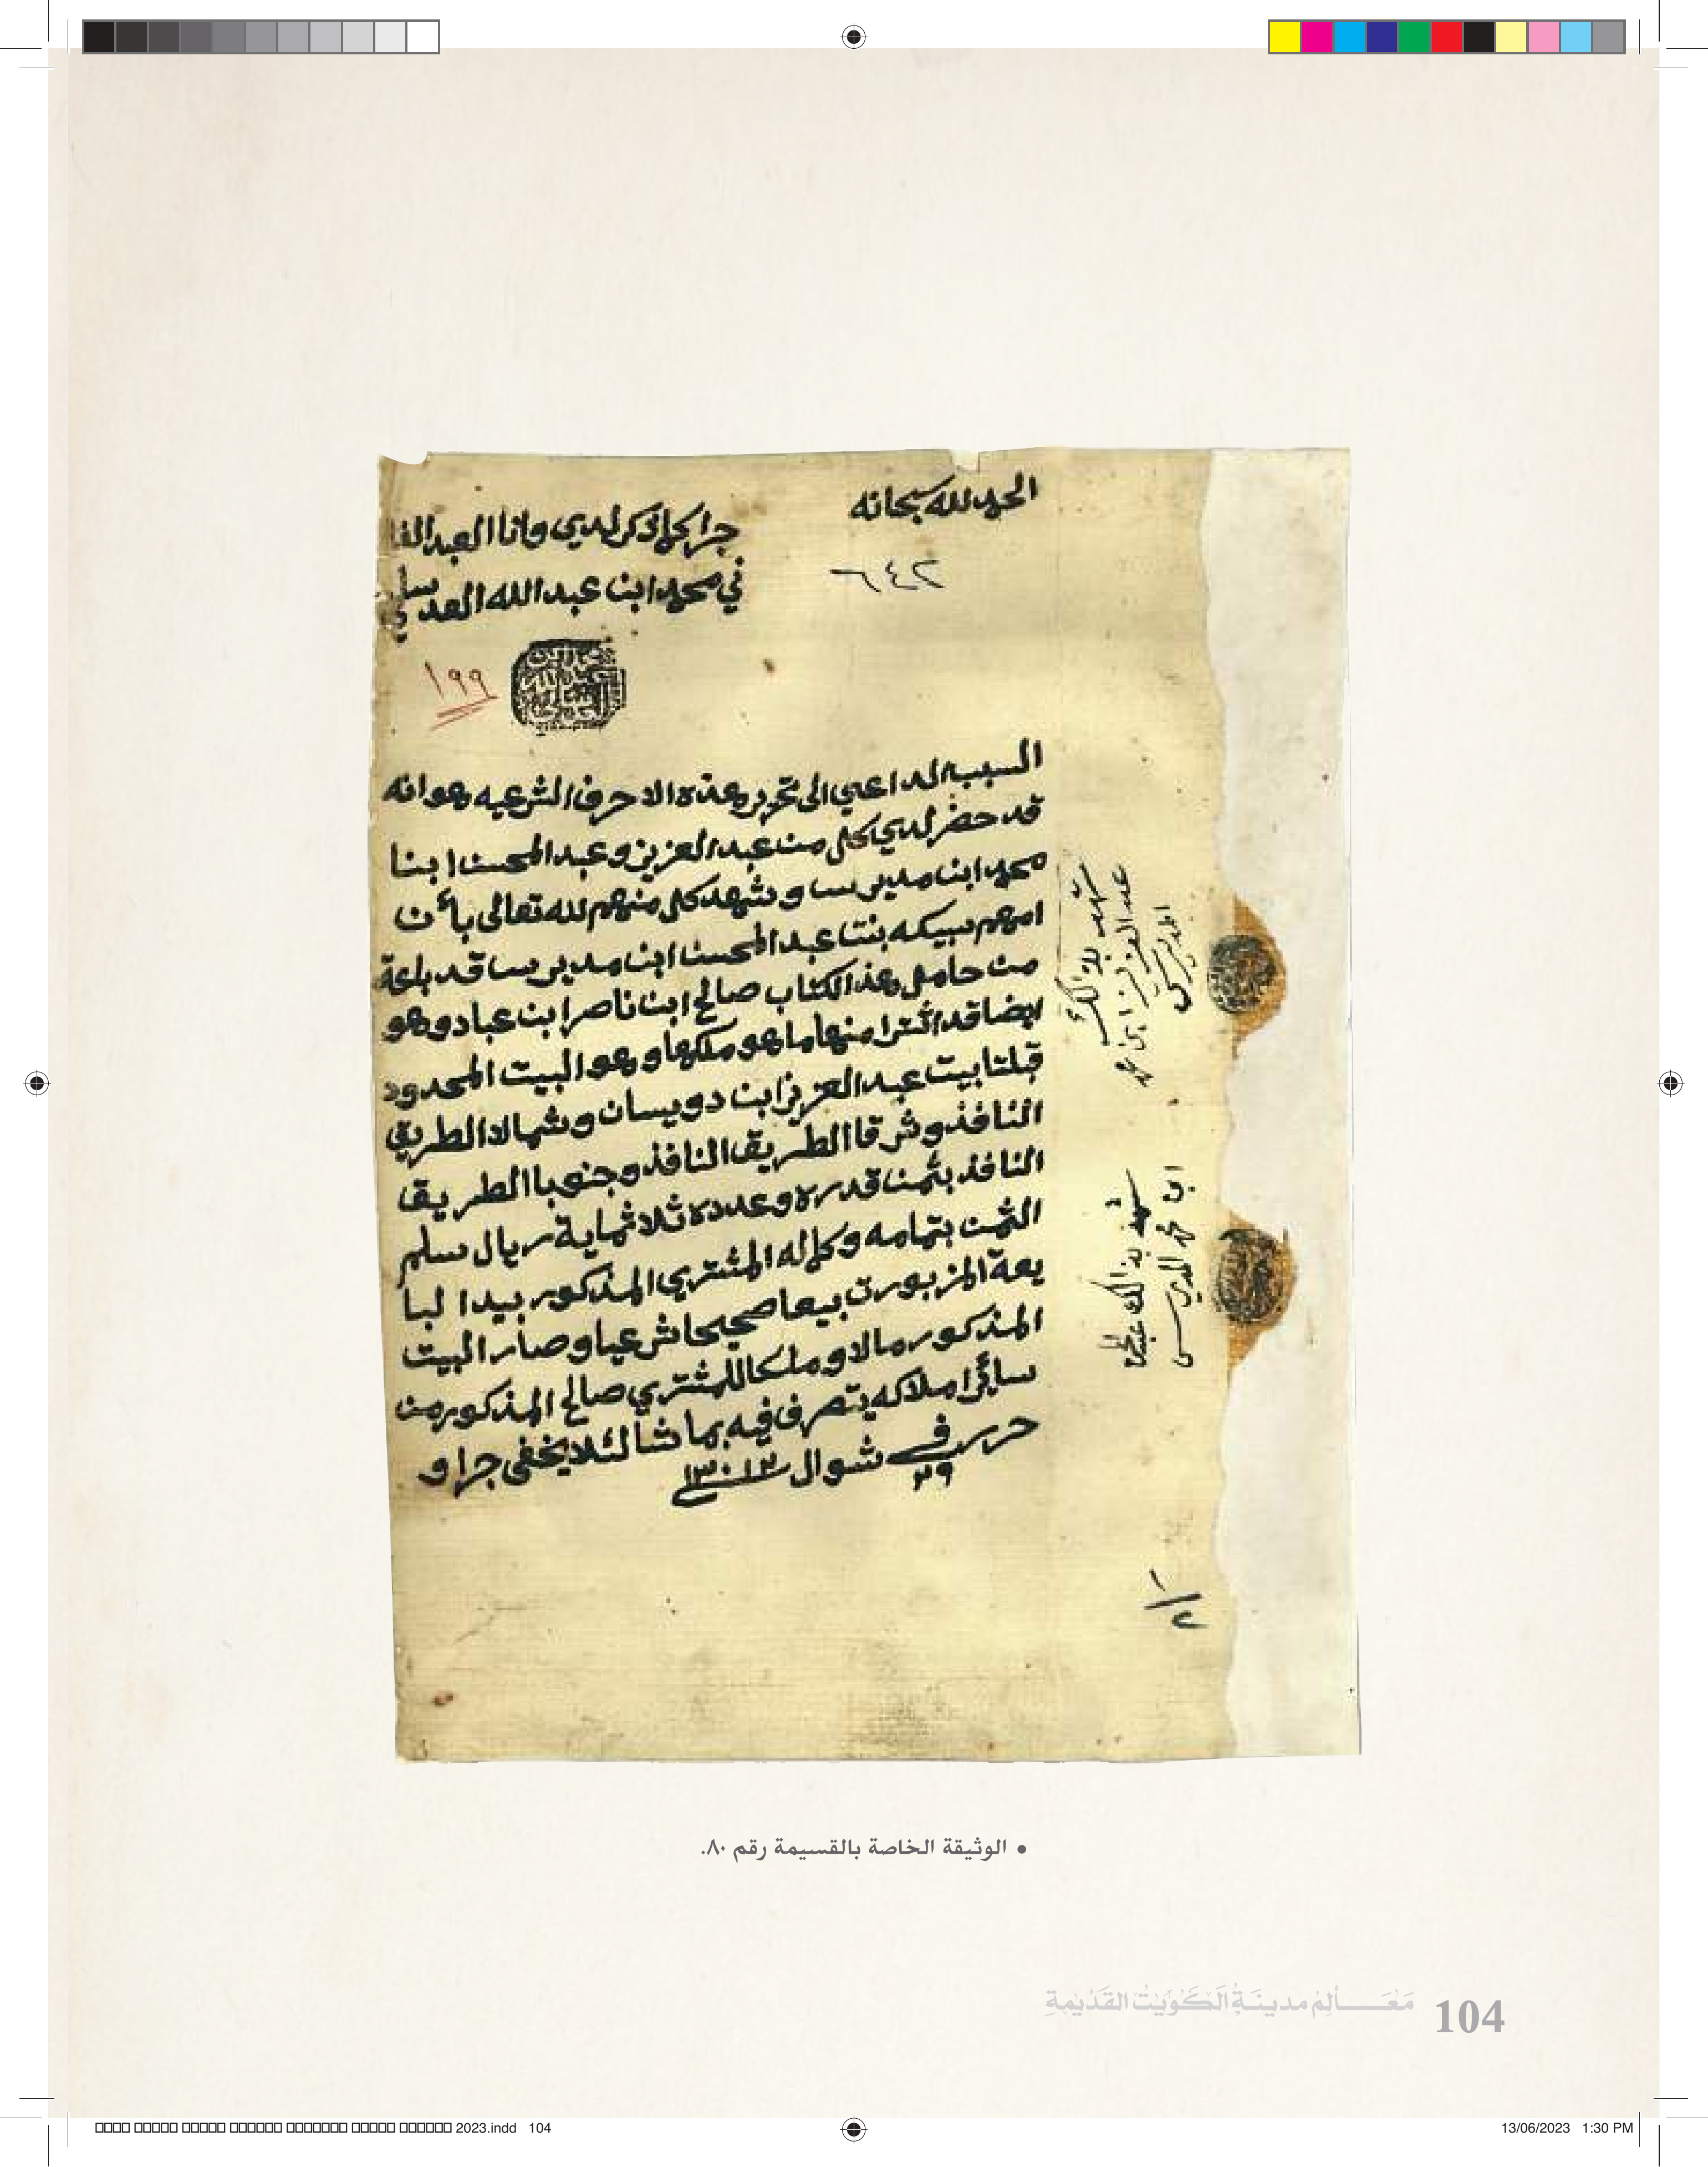 الحمد لله سبحانه
جرا كما ذكر لدي وانا العبد الفا
ني محمد ابن عبد الله العدساني
٦٤٢
١٩٩
السبب الداعي الى تحرير هذه الاحرف الشرعيه هو انه
قد حضر لدي كل من عبد العزيز و عبد المحسن ابنا
محمد ابن مديرس و شهد كل منهم لله تعالى بأن
امهم سبيكه بنت عبد المحسن ابن مديرس قد باعة
من حامل هذ الكتاب صالح ابن ناصر ابن عباد وهو
ايضا قد اشترا منها ما هو ملكها و هو البيت المحدود
قبلتا بيت عبد العزيز ابن دويسان و شمالا الطريق
النافذ و شرقا الطريق النافذ و جنوبا الطريق
النافذ بثمن قدره و عدده ثلاثماية ريال سلم
الثمن بتمامه وكماله المشتري المذكور بيد البا
يعة المزبورت بيعا صحيحا شرعيا و صار البيت
المذكور مالا و ملكا للمشتري صالح المذكور من
سائر املاكه يتصرف فيه بما شا لئلا يخفى جرا و
حرر في ٢٩ شوال ١٣٠١٣
شهد بذالك
عبد العزيز ابن محمد
المديرس
شهد بذالك عبد المحسن
ابن محمد المديرس
١/٢
• الوثيقة الخاصة بالقسيمة رقم ٨٠.
مَعَالِمُ مدينَةِ الكُوَيْتِ القَدْيمَةِ 104
2023.indd 104
13/06/2023 1:30 PM